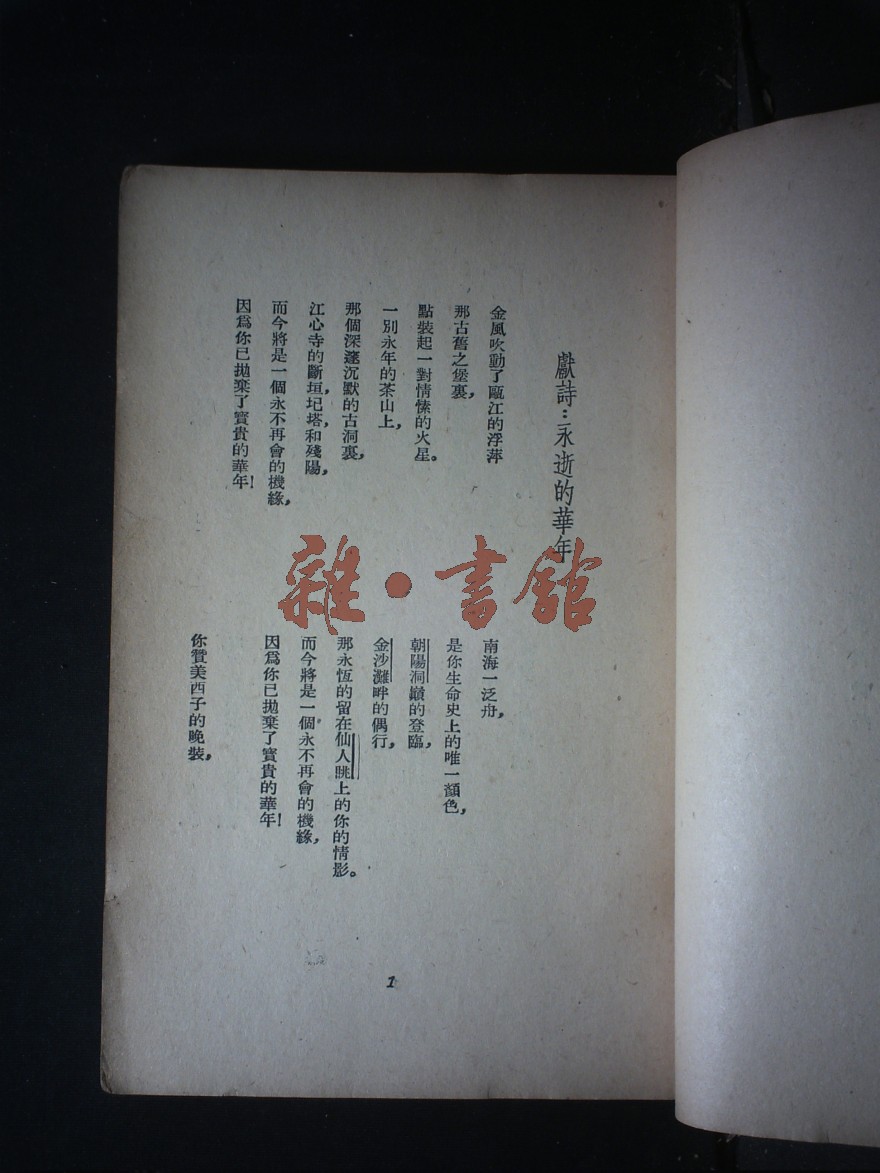 獻詩：永逝的華年
金風吹動了甌江的浮萍
那古舊之堡裏，
點裝起一對情愫的火星。
一別永年的茶山上，
那個深邃沉默的古洞裏，
江心寺的斷垣，圮塔，和殘陽，
而今將是一個永不再會的機緣，
因爲你已拋棄了寶貴的華年！
南海一泛舟，
是你生命史上的唯一顏色，
朝陽洞巓的登臨，
金沙灘畔的偶行，
那永恆的留在仙人眺上的你的情影。
而今將是一個永不再會的機緣，
因爲你已拋棄了寶貴的華年！
你贊美西子的晚裝，
雜·書館
1